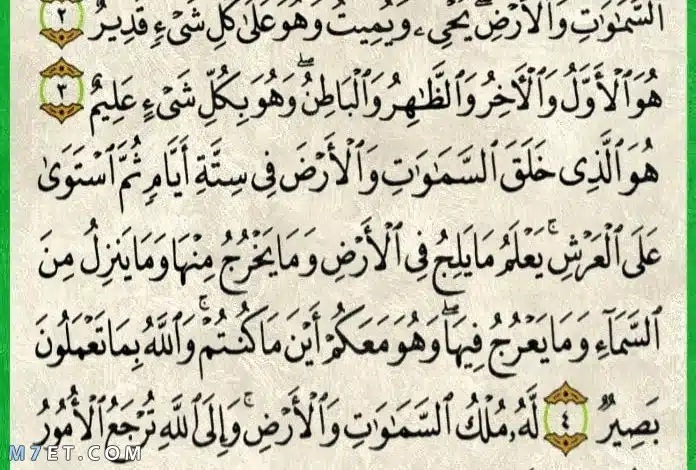 ٱلسَّمَٰوَٰتِ وَٱلْأَرْضِ ۖ يُحْىِۦ وَيُمِيتُ وَهُوَ عَلَىٰ كُلِّ شَىْءٍ قَدِيرٌ ٢
هُوَ ٱلْأَوَّلُ وَٱلْءَاخِرُ وَٱلظَّٰهِرُ وَٱلْبَاطِنُ ۖ وَهُوَ بِكُلِّ شَىْءٍ عَلِيمٌ ٣
هُوَ ٱلَّذِى خَلَقَ ٱلسَّمَٰوَٰتِ وَٱلْأَرْضَ فِى سِتَّةِ أَيَّامٍ ثُمَّ ٱسْتَوَىٰ
عَلَى ٱلْعَرْشِ ۚ يَعْلَمُ مَا يَلِجُ فِى ٱلْأَرْضِ وَمَا يَخْرُجُ مِنْهَا وَمَا يَنزِلُ مِنَ
ٱلسَّمَآءِ وَمَا يَعْرُجُ فِيهَا ۖ وَهُوَ مَعَكُمْ أَيْنَ مَا كُنتُمْ ۚ وَٱللَّهُ بِمَا تَعْمَلُونَ
بَصِيرٌ ٤ لَّهُۥ مُلْكُ ٱلسَّمَٰوَٰتِ وَٱلْأَرْضِ ۚ وَإِلَى ٱللَّهِ تُرْجَعُ ٱلْأُمُورُ
M7ET.COM